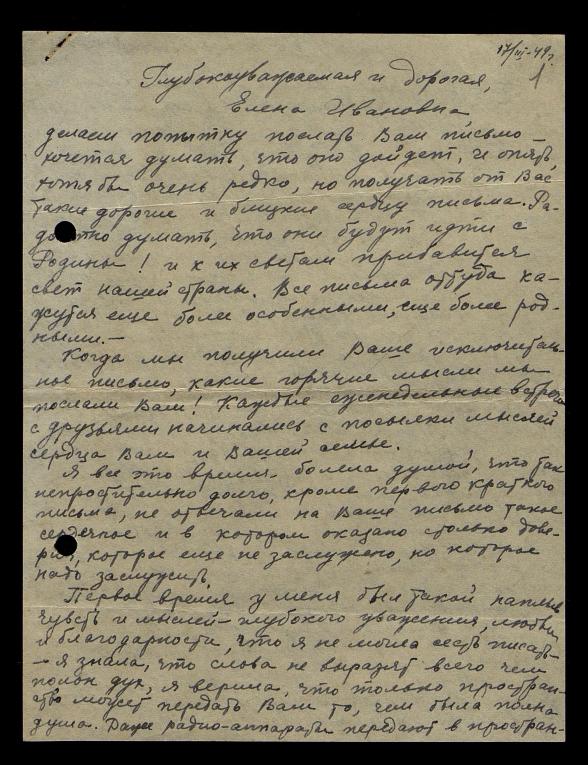 17/III-49г.
1
Глубокоуважаемая и дорогая,
Елена Ивановна,
делаем попытку послать Вам письмо –
хочется думать, что оно дойдет, и опять,
хотя бы очень редко, но получать от Вас
такие дорогие и близкие сердцу письма. Ра-
достно думать, что они будут идти с
Родины! и к их светам прибавится
свет нашей страны. Все письма оттуда ка-
жутся еще более особенными, еще более род-
ными. –
Когда мы получили Ваше исключитель-
ное письмо, какие горячие мысли мы
послали Вам! Каждые еженедельные встречи
с друзьями начинались с посылки мыслей
сердца Вам и Вашей семье.
Я все это время болела душой, что так
непростительно долго, кроме первого краткого
письма, не отвечали на Ваше письмо такое
сердечное и в котором оказано столько дове-
рия, которое еще не заслужено, но которое
надо заслужить.
Первое время у меня был такой наплыв
чувств и мыслей – глубокого уважения, любви
и благодарности, что я не могла сесть писать –
– я знала, что слова не выразят всего чем
полон дух, я верила, что только простран-
ство может передать Вам то, чем была полна
душа. Даже радио-аппараты передают в простран-